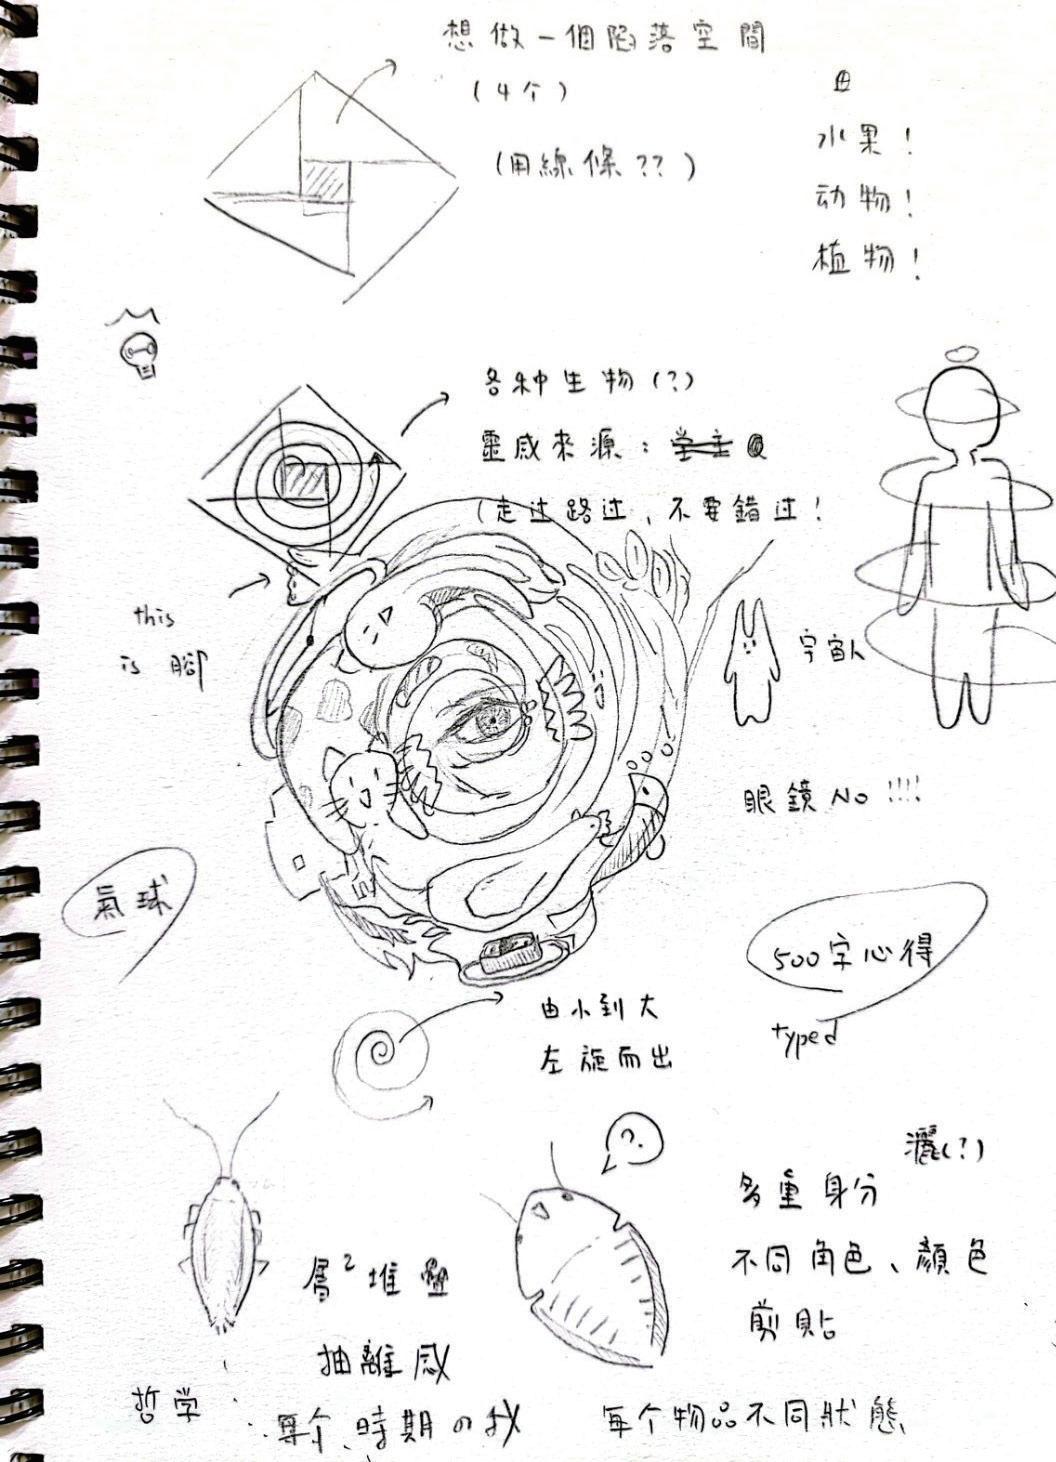 想做一個陷落空間
(4个)
(用線條??)
水果!
动物!
植物!
各种生物(?)
靈感來源:
(走过路过、不要錯过!
this
is 腳
宇宙人
眼鏡 No !!!!
氣球
500字心得
typed
由小到大
左旋而出
?
灑(?)
多重身分
不同角色、顏色
剪貼
層² 堆疊
抽離感
哲学:
每个時期の我
每个物品不同狀態